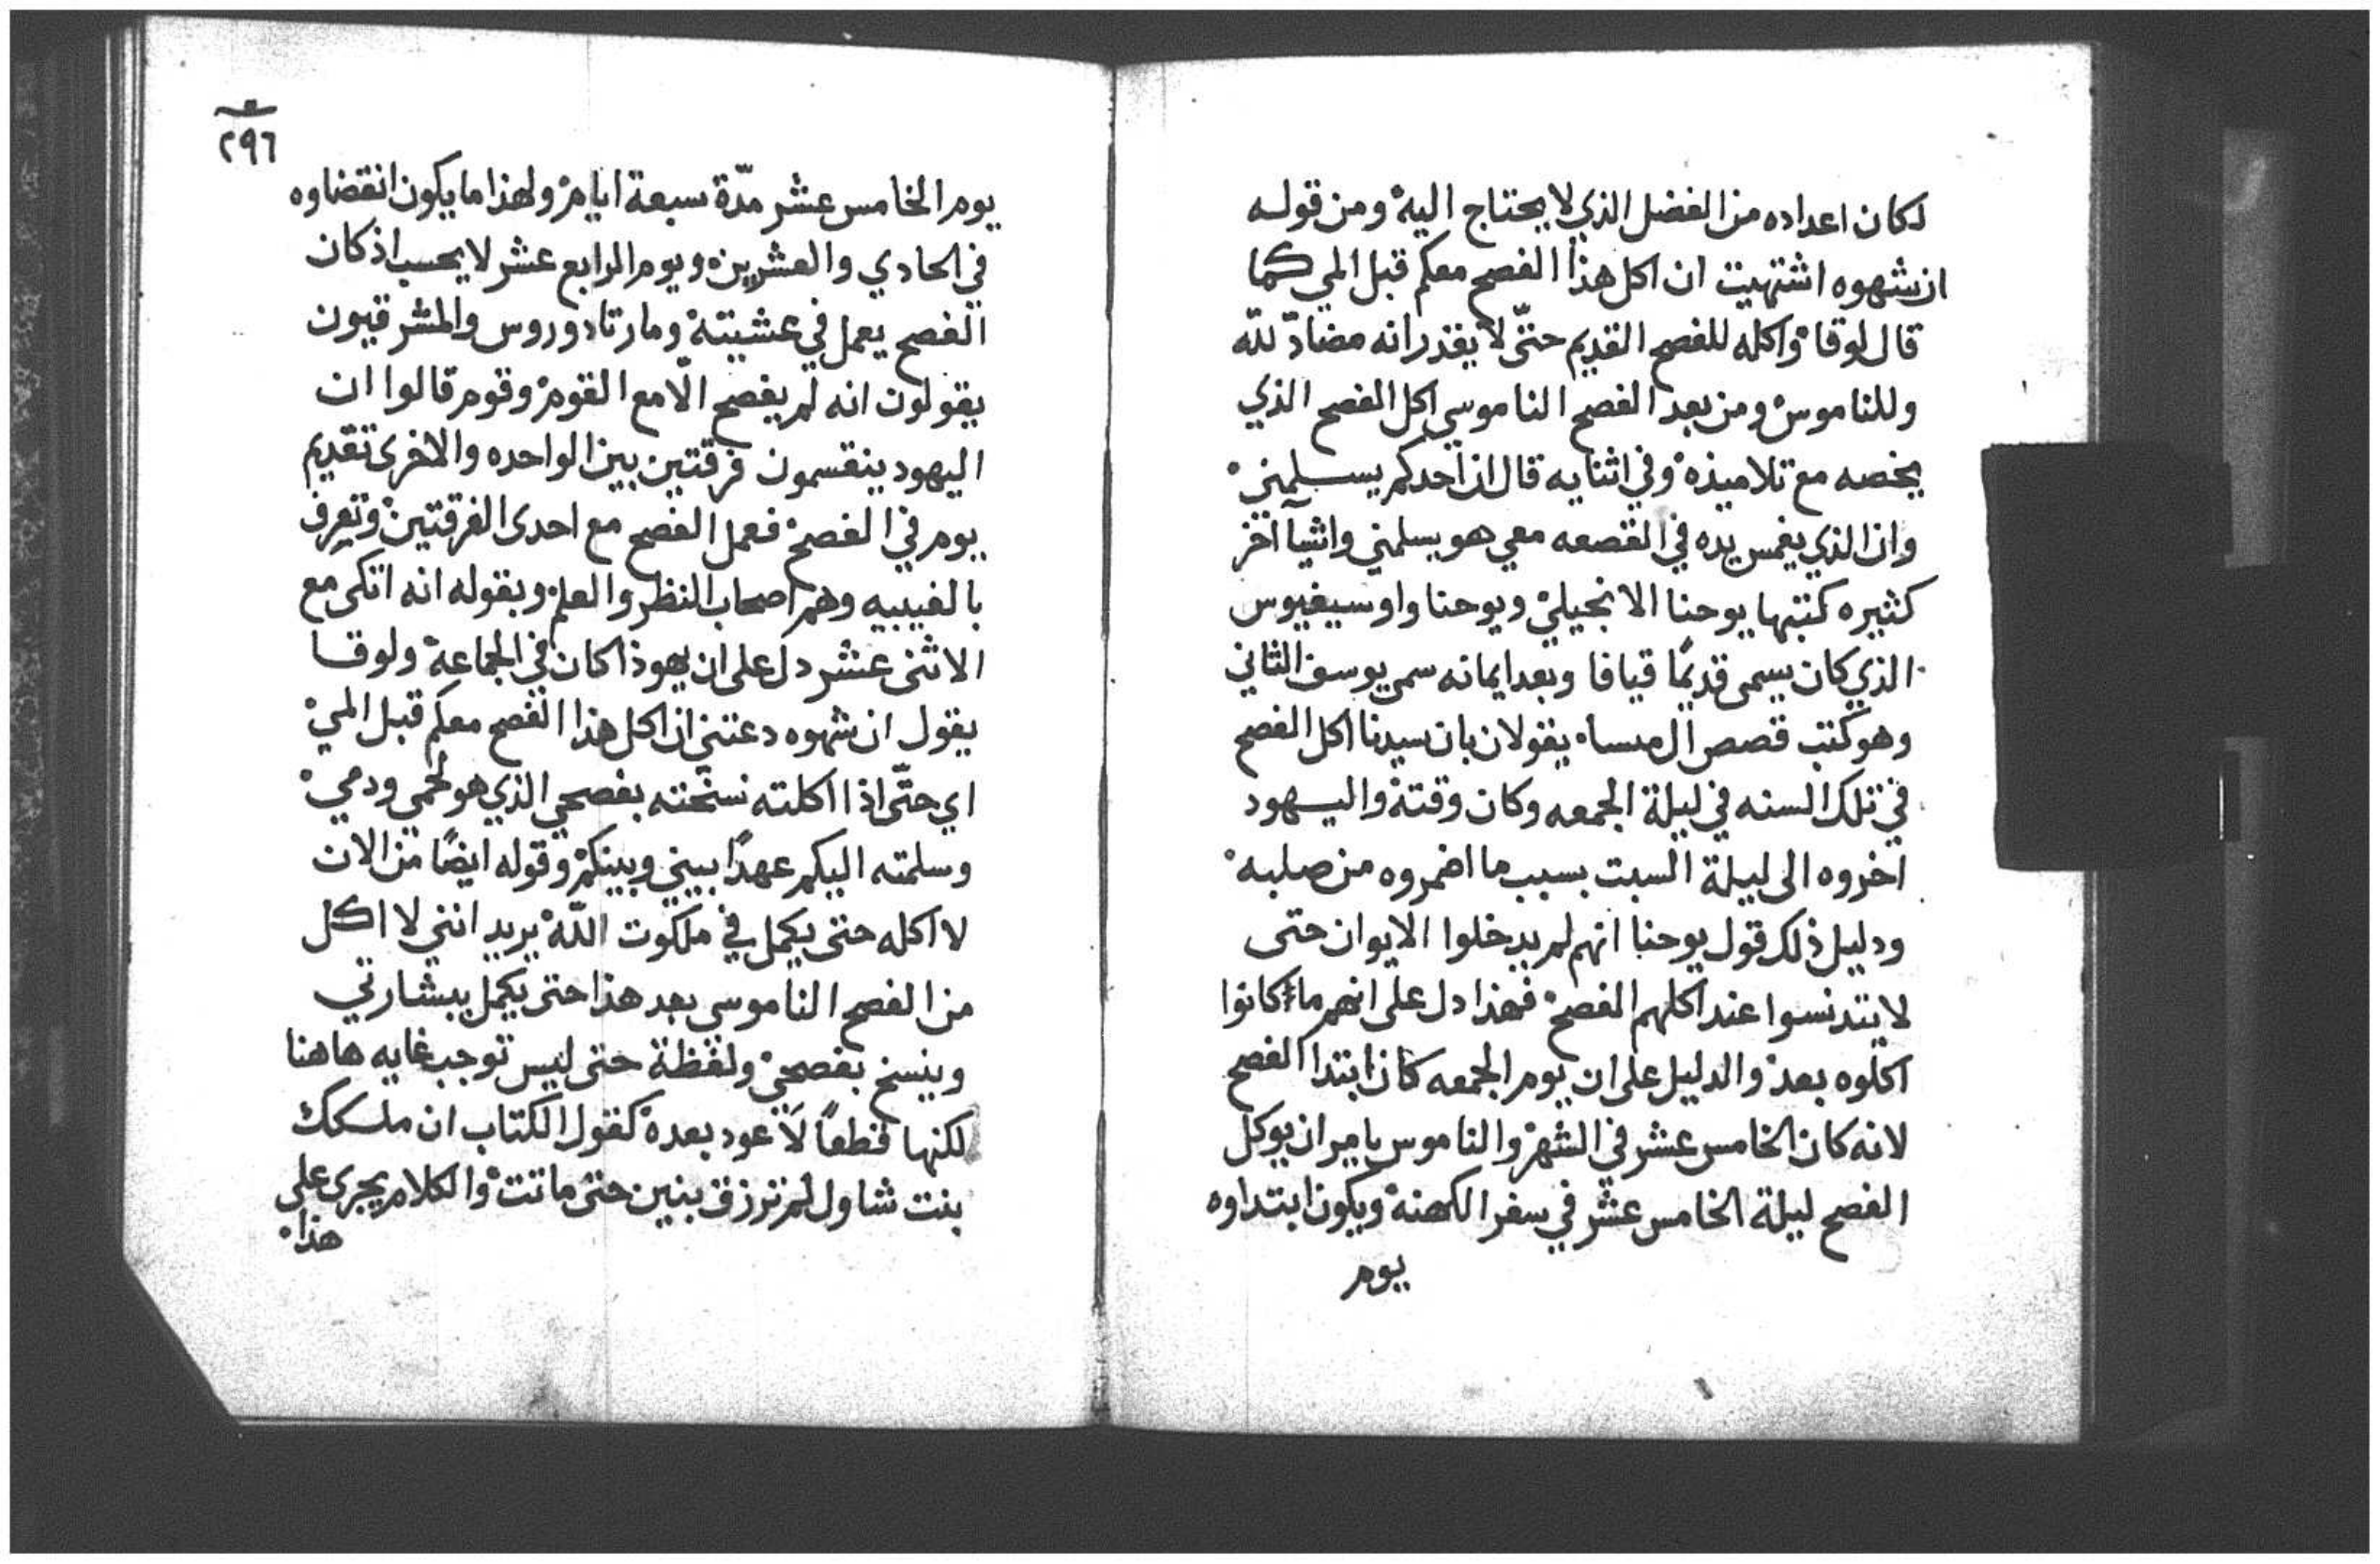 لكان اعداده من الفضل الذي لا يحتاج اليه ومن قوله
ان شهوه اشتهيت ان اكل هذا الفصح معكم قبل المي كما
قال لوقا واكله للفصح القديم حتّى لا يقدر انه مضادّ للّه
وللناموس ومن بعد الفصح الناموسي اكل الفصح الذي
يخصه مع تلاميذه وفي اثنايه قال ان احدكم يسلمني
وان الذي يغمس يده في القصعه معي هو يسلمني واشيآ اخر
كثيره كتبها يوحنا الانجيلي ويوحنا واوسيفيوس
الذي كان يسمى قديمًا قيافا وبعد ايمانه سمى يوسف الثاني
وهو كتب قصص ال يقولان بان سيدنا اكل الفصح
في تلك السنه في ليلة الجمعه وكان وقته واليهود
اخروه الى ليلة السبت بسبب ما اضمروه من صلبه
ودليل ذلك قول يوحنا انهم لم يدخلوا الايوان حتى
لا يتدنسوا عند اكلهم الفصح فهذا دل على انهم ما كانوا
اكلوه بعد والدليل على ان يوم الجمعه كان ابتدا الفصح
لانه كان الخامس عشر في الشهر والناموس يامر ان يوكل
الفصح ليلة الخامس عشر في سفر الكهنة ويكون ابتداوه
يوم
٢٩٦
يوم الخامس عشر مدّة سبعة ايام ولهذا ما يكون انقضاوه
في الحادي والعشرين ويوم الرابع عشر لا يحسب اذ كان
الفصح يعمل في عشيته ومار تادوروس والمشرقيون
يقولون انه لم يفصح الّا مع القوم وقوم قالوا ان
اليهود ينقسمون فرقتين بين الواحده والاخرى تقديم
يوم في الفصح فعمل الفصح مع احدى الفرقتين وتعرف
وهم اصحاب النظر والعلم وبقوله انه اتكى مع
الاثنى عشر دل على ان يهوذا كان في الجماعة ولوقا
يقول ان شهوه دعتني ان اكل هذا الفصح معكم قبل المي
اي حتّى اذا اكلته نسخته بفصحي الذي هو لحمي ودمي
وسلمته اليكم عهدًا بيني وبينكم وقوله ايضًا من الان
لا اكله حتى يكمل في ملكوت اللّه يريد انني لا اكل
من الفصح الناموسي بعد هذا حتى يكمل ببشارتي
وينسخ بفصحي ولفظة حتى ليس توجب غايه هاهنا
لكنها قطعًا لا عود بعده كقول الكتاب ان ملكك
بنت شاول لم ترزق بنين حتى ماتت والكلام يجرى على
هذا